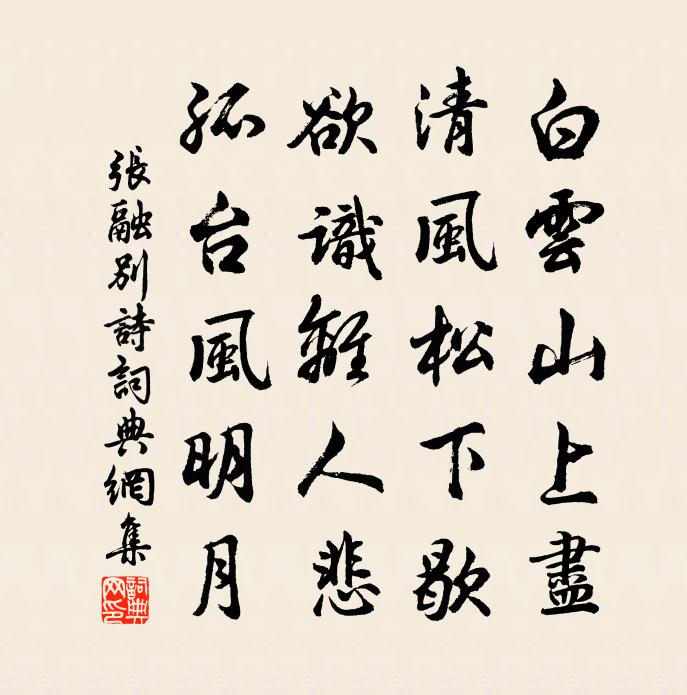 白雲山上盡
清風松下歇
欲識離人悲
孤台風明月
張融別詩詞典網集
詞典網印